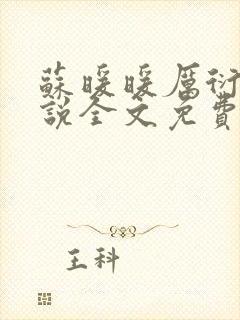 蘇暖暖厲衍
說全文免費
王科